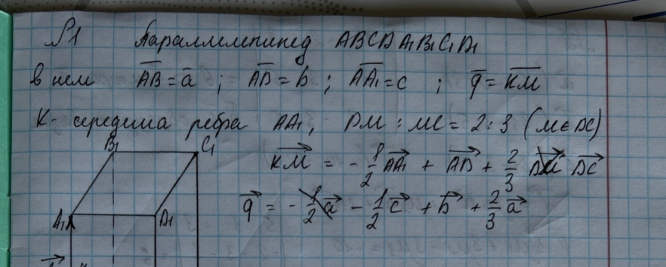 №1 Параллелепипед ABCDA₁B₁C₁D₁
в нем AB = a ; AD = b ; AA₁ = c ; q = KM
K - середина ребра AA₁, DM : MC = 2 : 3 (M ∈ DC)
KM = - 1/2 AA₁ + AD + 2/3 DC
q = - 1/2 a - 1/2 c + b + 2/3 a
B₁ C₁
A₁ D₁